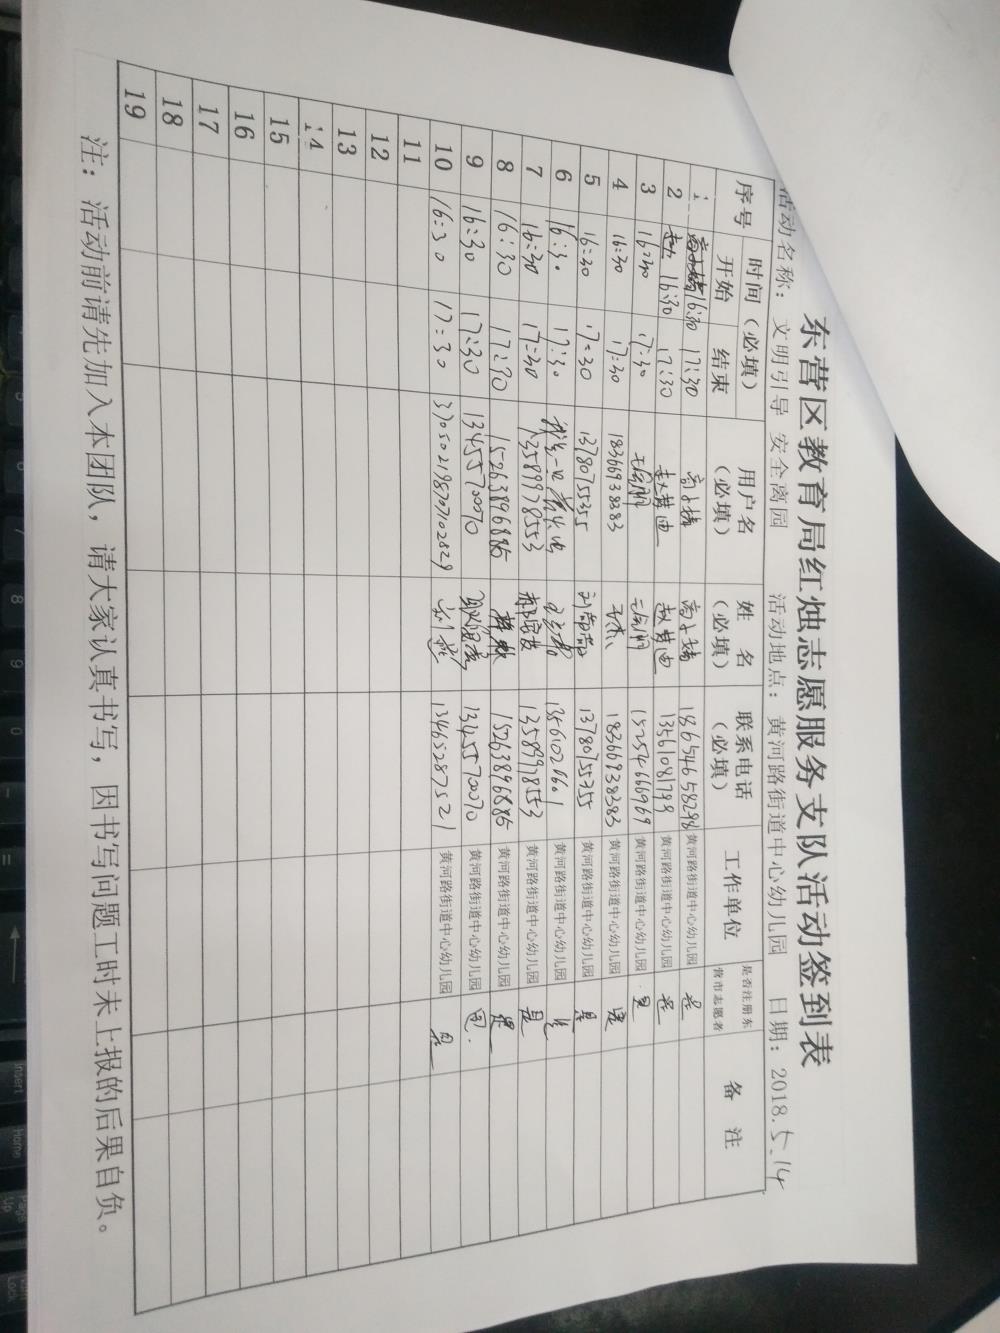 东营区教育局红烛志愿服务支队活动签到表
活动名称：文明引导 安全离园 活动地点：黄河路街道中心幼儿园 日期：2018.5.14
序号 时间（必填） 用户名（必填） 姓 名（必填） 联系电话（必填） 工作单位 是否注册东营市志愿者 备 注
开始 结束
1 16:30 17:30 18654658298 黄河路街道中心幼儿园 是
2 16:30 17:30 赵梦迪 赵梦迪 13561081799 黄河路街道中心幼儿园 是
3 16:30 17:30 15254666969 黄河路街道中心幼儿园 是
4 16:30 17:30 18366938383 18266938383 黄河路街道中心幼儿园 是
5 16:30 17:30 13780755355 13780755355 黄河路街道中心幼儿园 是
6 16:30 17:30 13561026601 黄河路街道中心幼儿园 是
7 16:30 17:30 13589978553 13589978553 黄河路街道中心幼儿园 是
8 16:30 17:30 15263896885 15263896885 黄河路街道中心幼儿园 是
9 16:30 17:30 13455570070 13455570070 黄河路街道中心幼儿园 是
10 16:30 17:30 370502198707102829 13465287521 黄河路街道中心幼儿园 是
11
12
13
14
15
16
17
18
19
注：活动前请先加入本团队，请大家认真书写，因书写问题工时未上报的后果自负。
Insert
Home
Page Up
Lock